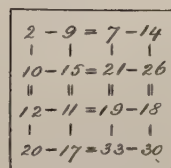 2 - 9 = 7 - 14
| | | |
10 - 15 = 21 - 26
|| || || ||
12 - 11 = 19 - 18
| | | |
20 - 17 = 33 - 30